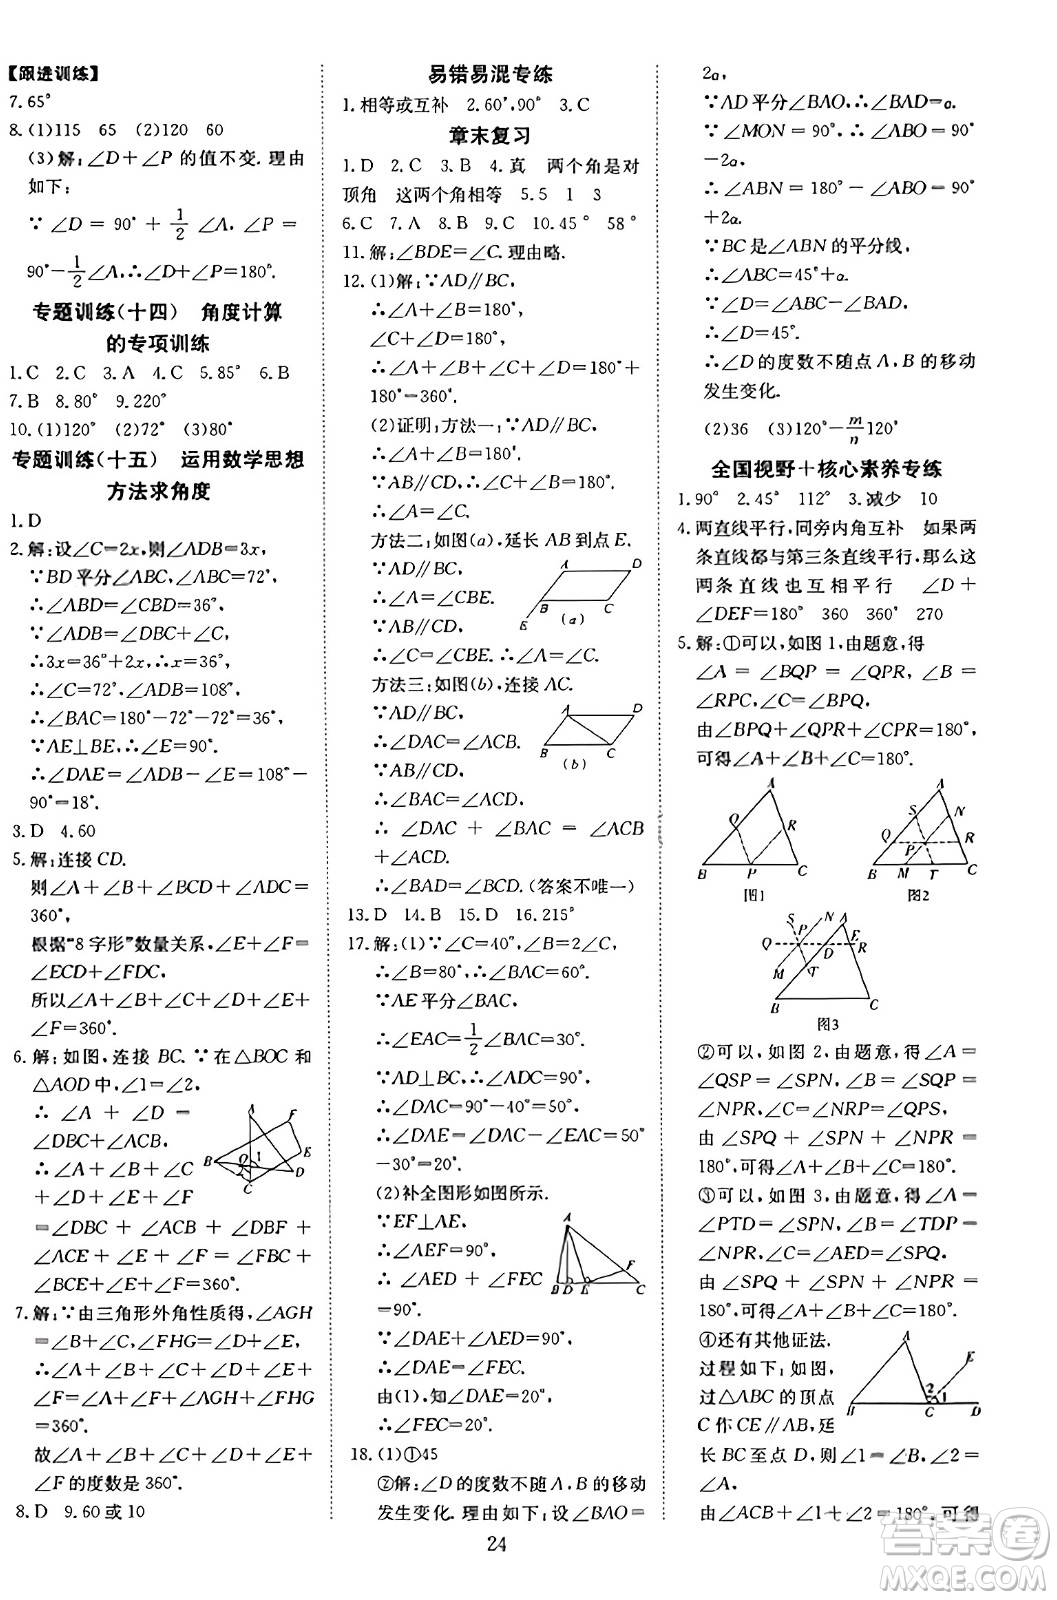 【跟进训练】
7. 65°
8. (1)115　65　(2)120　60
(3)解:∠D＋∠P 的值不变. 理由
如下:
∵∠D＝90°＋1/2∠A,∠P＝
90°－1/2∠A,∴∠D＋∠P＝180°.
专题训练(十四)　角度计算
的专项训练
1. C　2. C　3. A　4. C　5. 85°　6. B
7. B　8. 80°　9. 220°
10. (1)120°　(2)72°　(3)80°
专题训练(十五)　运用数学思想
方法求角度
1. D
2. 解:设∠C＝2x,则∠ADB＝3x,
∵BD平分∠ABC,∠ABC＝72°,
∴∠ABD＝∠CBD＝36°,
∵∠ADB＝∠CBD＋∠C,
∴3x＝36°＋2x,∴x＝36°,
∴∠C＝72°,∴∠ADB＝108°,
∴∠BAC＝180°－72°－72°＝36°,
∵AE⊥BE,∴∠E＝90°,
∴∠DAE＝∠ADB－∠E＝108°－
90°＝18°.
3. D　4. 60
5. 解:连接 CD.
则∠A＋∠B＋∠BCD＋∠ADC＝
360°,
根据“8 字形”数量关系,∠E＋∠F＝
∠ECD＋∠FDC,
所以∠A＋∠B＋∠C＋∠D＋∠E＋
∠F＝360°.
6. 解:如图,连接 BC. ∵在△BOC 和
△AOD 中,∠1＝∠2,
∴∠A＋∠D＝
∠DBC＋∠ACB.
∴∠A＋∠B＋
∠C＋∠D＋∠E＋∠F
＝∠DBC＋∠ACB＋∠FBD＋
∠ACE＋∠E＋∠F＝∠FBC＋
∠BCE＋∠E＋∠F＝360°.
7. 解:∵由三角形外角性质得,∠AGH
＝∠B＋∠C,∠FHG＝∠D＋∠E,
∴∠A＋∠B＋∠C＋∠D＋∠E＋
∠F＝∠A＋∠AGH＋∠FHG＋∠F＝
360°.
故∠A＋∠B＋∠C＋∠D＋∠E＋
∠F 的度数是 360°.
8. D　9. 60 或 10
易错易混专练
1. 相等或互补　2. 60°,90°　3. C
章末复习
1. D　2. C　3. B　4. 真　两个角是对
顶角　这两个角相等　5. 5　1　3
6. C　7. A　8. B　9. C　10. 45°　58°
11. 解:∠BDE＝∠C. 理由略.
12. (1)解:∵AD∥BC,
∴∠A＋∠B＝180°,
∠C＋∠D＝180°,
∴∠A＋∠B＋∠C＋∠D＝180°＋
180°＝360°.
(2)证明:方法一:∵AD∥BC,
∴∠A＋∠B＝180°.
∵AB∥CD,∴∠B＋∠C＝180°.
∴∠A＝∠C.
方法二:如图(a),延长 AB 到点 E.
∵AD∥BC,
∴∠A＝∠CBE.
∵AB∥CD,
A
D
B
C
E
(a)
∴∠C＝∠CBE. ∴∠A＝∠C.
方法三:如图(b),连接 AC.
∵AD∥BC,
∴∠DAC＝∠ACB.
∵AB∥CD,
A
D
B
C
(b)
∴∠BAC＝∠ACD.
∴∠DAC＋∠BAC＝∠ACB
＋∠ACD.
∴∠BAD＝∠BCD. (答案不唯一)
13. D　14. B　15. D　16. 215°
17. 解:(1)∵∠C＝40°,∠B＝2∠C,
∴∠B＝80°,∴∠BAC＝60°.
∵AE平分∠BAC,
∴∠EAC＝1/2∠BAC＝30°.
∵AD⊥BC,
∴∠DAC＝90°－40°＝50°,
∴∠DAE＝∠DAC－∠EAC＝50°
－30°＝20°.
(2)补全图形如图所示.
∵EF⊥AE,
∴∠AEF＝90°,
∴∠AED＋∠FEC
＝90°.
A
F
B
D
E
C
∵∠DAE＋∠AED＝90°,
∴∠DAE＝∠FEC.
由(1),∠DAE＝20°,
∴∠FEC＝20°.
18. (1)①45
②解:∠D 的度数不随 A,B 的移动
发生变化. 理由如下:设∠BAO＝
2α,
∵AD平分∠BAO,∴∠BAD＝α.
∵∠MON＝90°,∴∠ABO＝90°
－2α.
∴∠ABN＝180°－∠ABO＝90°
＋2α.
∵BC 是∠ABN的平分线,
∴∠ABC＝45°＋α.
∵∠D＝∠ABC－∠BAD,
∴∠D＝45°.
∴∠D 的度数不随点A,B 的移动
发生变化.
(2)36　(3)120°－m/n 120°
全国视野＋核心素养专练
1. 90°　2. 45°　112°　3. 减少　10
4. 两直线平行,同旁内角互补　如果两
条直线都与第三条直线平行,那么这
两条直线也互相平行　∠D＋
∠DEF＝180°　360　360°　270
5. 解:①可以,如图 1,由题意,得
∠A＝∠BQP＝∠QPR,∠B＝
∠RPC,∠C＝∠BPQ,
由∠BPQ＋∠QPR＋∠CPR＝180°,
可得∠A＋∠B＋∠C＝180°.
A
Q
R
B
P
C
图1
A
S
N
Q
P
R
B
M
T
C
图2
S
N
A
Q
P
D
E
R
M
T
B
C
图3
②可以,如图 2,由题意,得∠A＝
∠QSP＝∠SPN,∠B＝∠SQP＝
∠NPR,∠C＝∠NRP＝∠QPS,
由∠SPQ＋∠SPN＋∠NPR＝
180°,可得∠A＋∠B＋∠C＝180°.
③可以,如图 3,由题意,得∠A＝
∠PTD＝∠SPN,∠B＝∠TDP＝
∠NPR,∠C＝∠AED＝∠SPQ,
由∠SPQ＋∠SPN＋∠NPR＝
180°,可得∠A＋∠B＋∠C＝180°.
④还有其他证法.
过程如下:如图,
过△ABC 的顶点
C 作 CE∥AB,延
A
E
B
C
D
2
1
长 BC至点 D,则∠B＝∠1,∠2＝
∠A.
由∠ACB＋∠1＋∠2＝180°,可得
24
答案圈
MXQE.COM